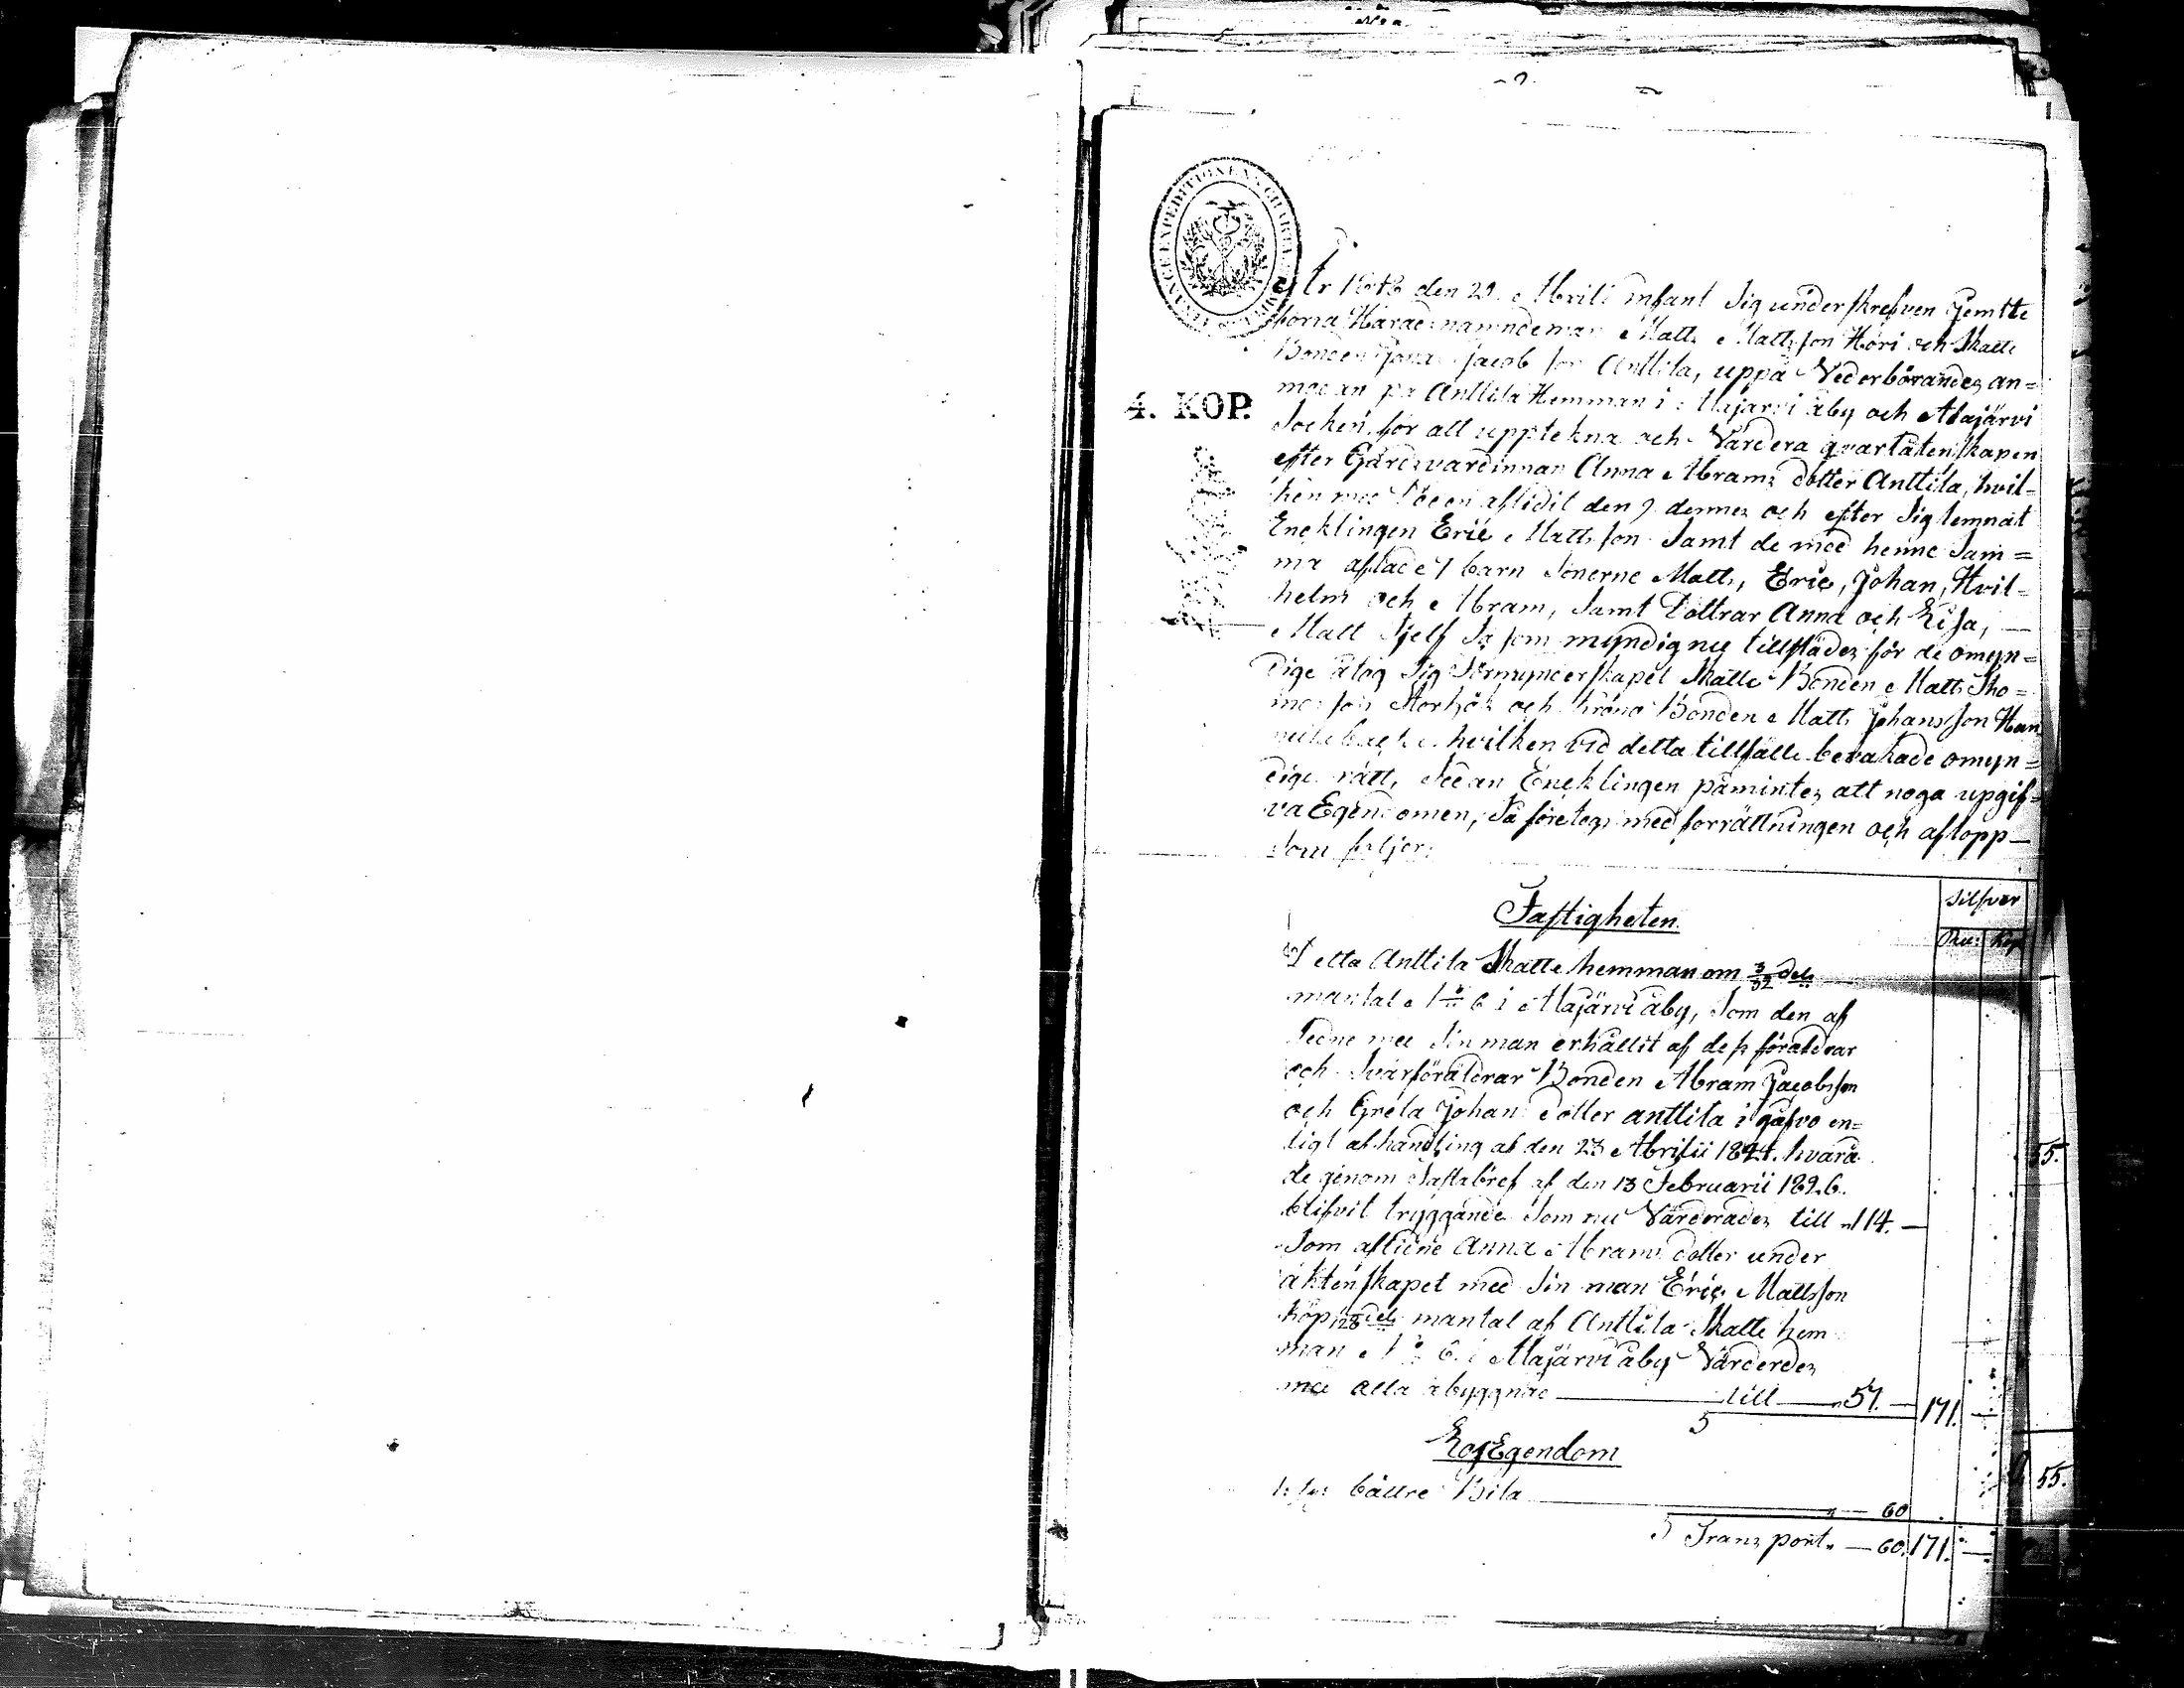 4. KOP.
År 1848 den 29 Aprili infant Sig underskrefven Jemte
förra Häradsnämndeman Matts Mattsson Höri och Skatte
Bonden Jacobsson Anttila, uppå Vederbörandes an=
modan på Anttila Hemman i Alajärvi åby och Alajärvi
Socken, för att upptekna och Värdera qvarlåtenskapen
efter Gårdsvärdinnan Anna Abrams dotter Anttila, hvil=
ken med Döden aflidit den 9 dennes och efter Sig lemnat
Encklingen Eric Mattsson Samt de med henne Sam=
ma aflade 7 barn Sönerne Matts, Eric, Johan, Wil=
helm och Abram, Samt Döttrar Anna och Lisa, —
Matts Sjelf Så som myndig nu tillstädes för de omyn=
dige åtog Sig Förmynderskapet Skatte Bonden Matts Tho=
masson Storhök och Krono Bonden Matts Johansson Han
hvilken vid detta tillfälle bevakade omyn=
dige rätt, Sedan Encklingen påmintes att noga upgif=
va Egendomen, Så företogs med förrättningen och aflopp—
Som följer:
Silfver
Fastigheten
Ru: Kop
Detta Anttila Skatte hemman om 3/32 dels
mantal No 6 i Alajärvi åby, Som den af
ledne med Sin man erhållit af dess föräldrar
och Svärföräldrar Bonden Abram Jacobsson
och Greta Johans dotter anttila i gåfvo en=
ligt afhandling af den 23 Aprilii 1824. hvarå
de genom Fastabref af den 13 Februarii 1826.
blifvit tryggande Som nu Värderades till 114. —
Som aflidne Anna Abrams dotter under
äktenskapet med Sin man Eric Mattsson
köp 128 dels mantal af Anttila Skatte hem
man No 6. i Alajärvi åby Värderdes
med alla åbyggnad — till — 57. — 171. —
Lös Egendom
1: st: bättre Bila — 60
Transport — 60. 171. —
55.
55.